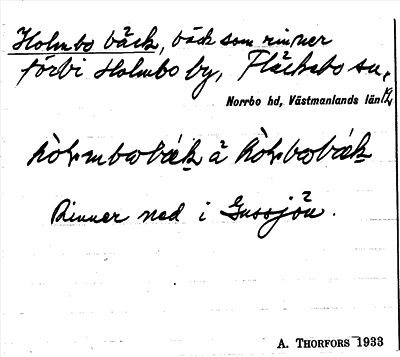 Holmbo bäck, bäck som rinner
förbi Holmbo by, Fläckebo sn,
Norrbo hd, Västmanlands län
å
Rinner ned i Gussjön.
A. THORFORS 1933